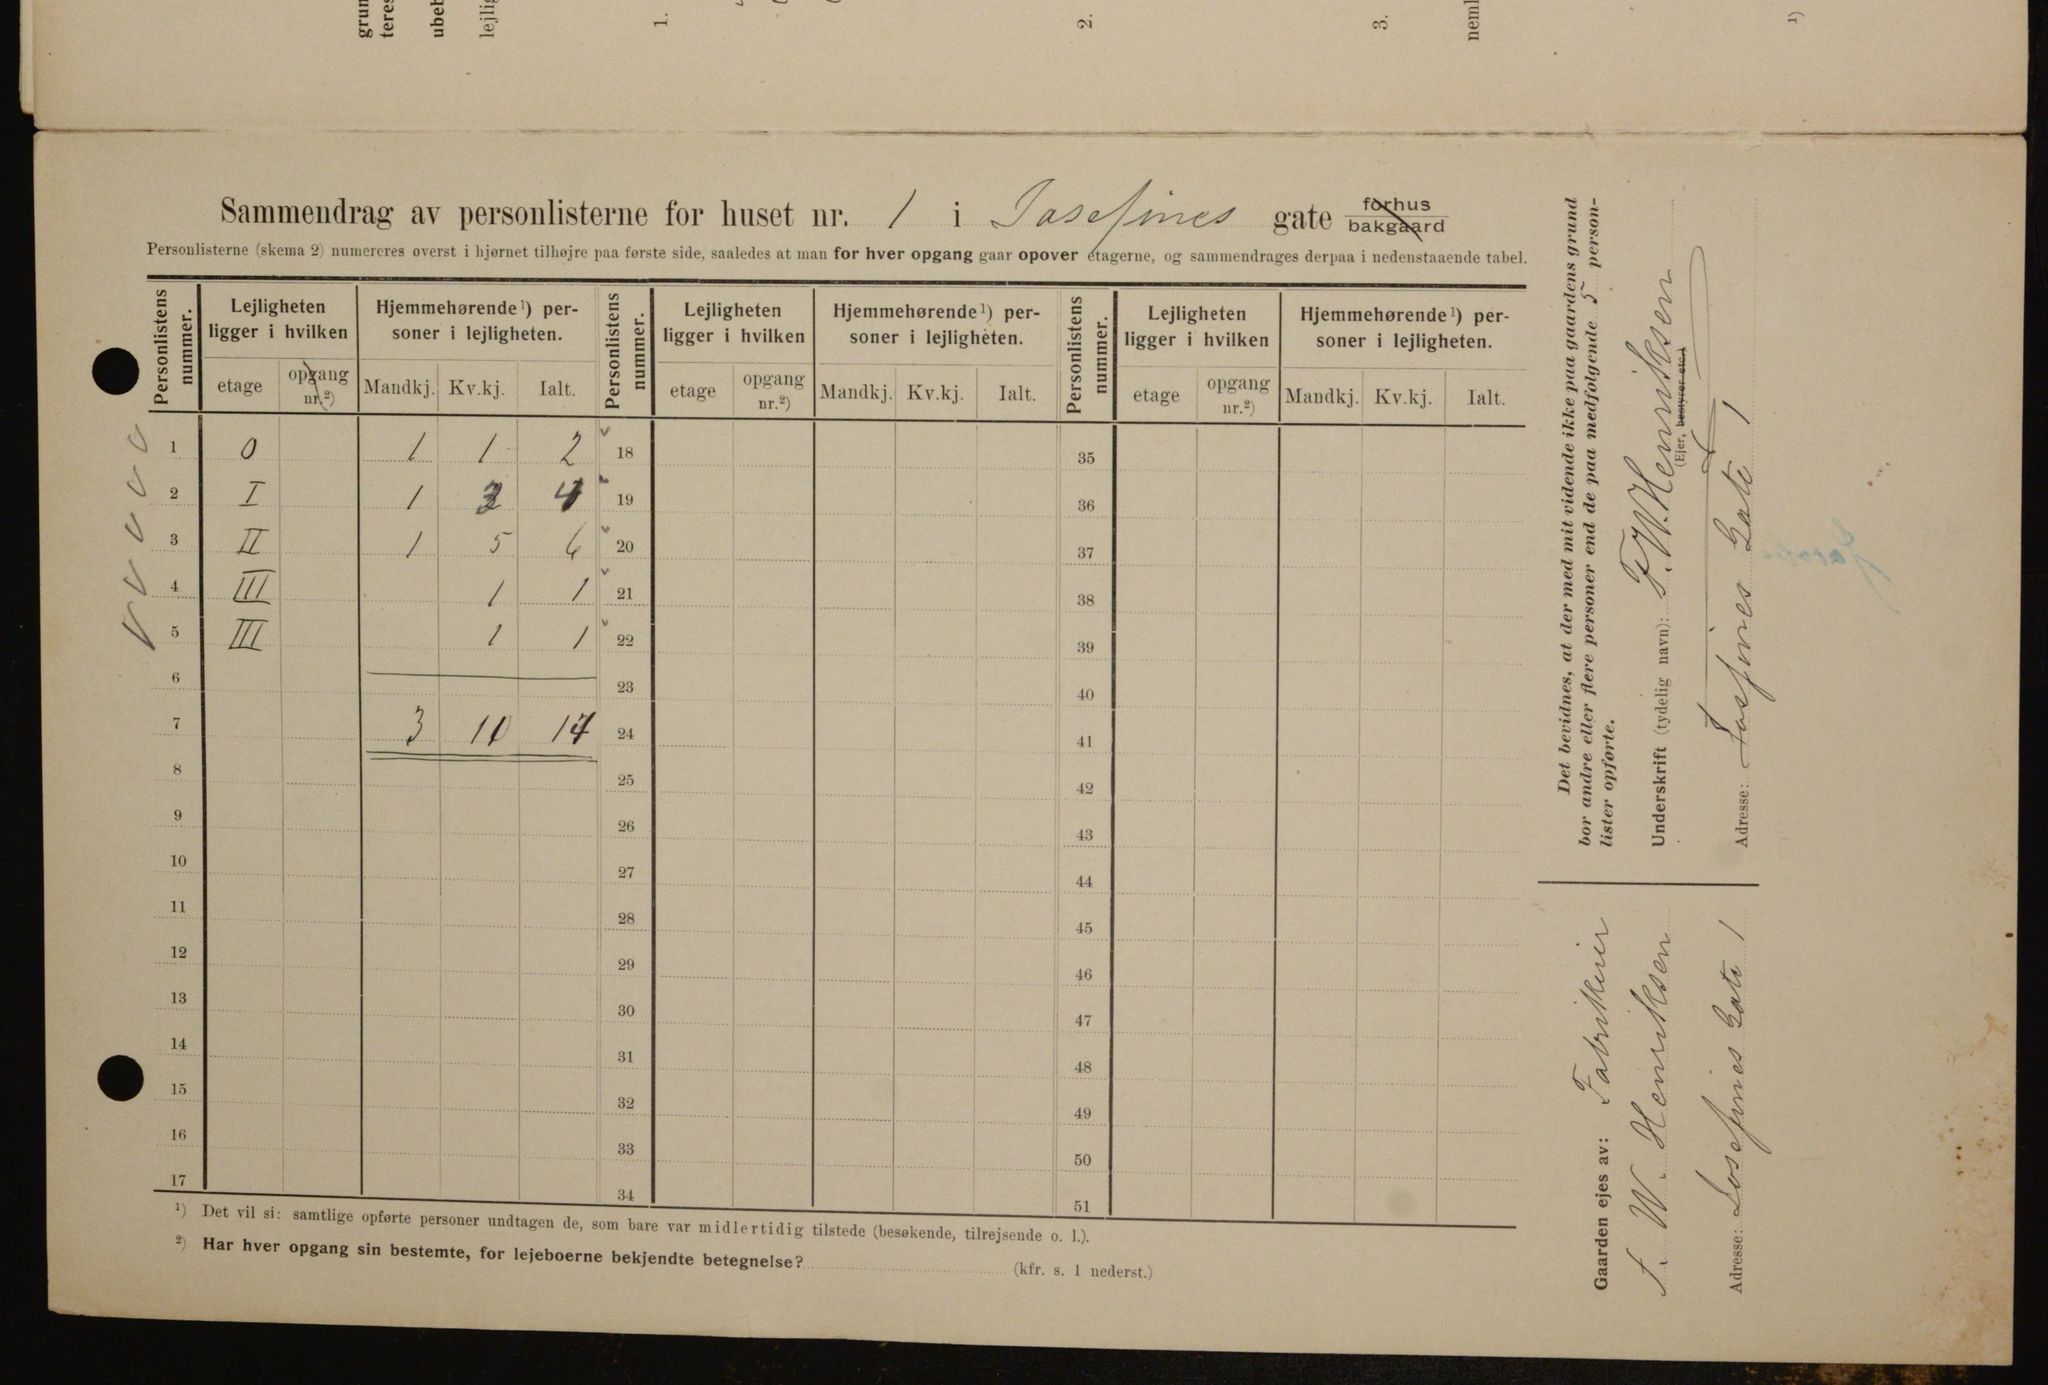 grun
teres
ubeb
lejlig
1.
2.
3.
neml
1)
Sammendrag av personlisterne for huset nr. 1 i Josefines gate forhus bakgaard
Personlisterne (skema 2) numereres øverst i hjørnet tilhøjre paa første side, saaledes at man for hver opgang gaar opover etagerne, og sammendrages derpaa i nedenstaaende tabel.
Personlistens nummer. Lejligheten ligger i hvilken Hjemmehørende 1) personer i lejligheten. Personlistens nummer. Lejligheten ligger i hvilken Hjemmehørende 1) personer i lejligheten. Personlistens nummer. Lejligheten ligger i hvilken Hjemmehørende 1) personer i lejligheten.
etage opgang nr. 2) Mandkj. Kv.kj. Ialt. etage opgang nr. 2) Mandkj. Kv.kj. Ialt. etage opgang nr. 2) Mandkj. Kv.kj. Ialt.
1 0 1 1 2 18 35
2 I 1 3 4 19 36
3 II 1 5 6 20 37
4 III 1 1 21 38
5 III 1 1 22 39
6 23 40
7 3 11 14 24 41
8 25 42
9 26 43
10 27 44
11 28 45
12 29 46
13 30 47
14 31 48
15 32 49
16 33 50
17 34 51
1) Det vil si: samtlige opførte personer undtagen de, som bare var midlertidig tilstede (besøkende, tilrejsende o. l.).
2) Har hver opgang sin bestemte, for lejeboerne bekjendte betegnelse? (kfr. s. 1 nederst.)
Det bevidnes, at der med mit vidende ikke paa gaardens grund
bor andre eller flere personer end de paa medfølgende 5 person-
lister opførte.
Underskrift (tydelig navn): F. W. Henriksen
(Ejer, bestyrer etc.)
Adresse: Josefines Gate 1
Gaarden ejes av: Fabrikeier
F. W. Henriksen
Adresse: Josefines Gate 1